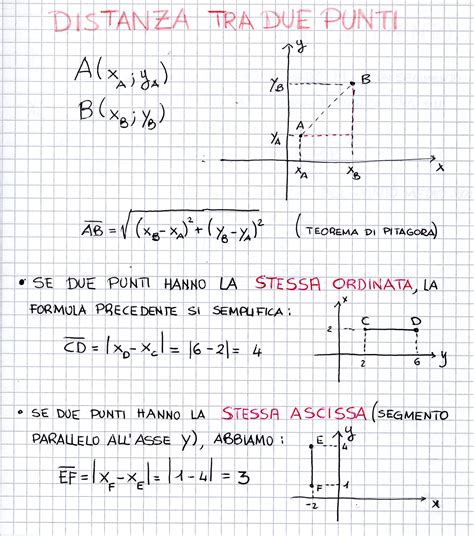 DISTANZA TRA DUE PUNTI
A(x_A; y_A)
B(x_B; y_B)
y
y_B
B
y_A
A
x_A
x_B
x
AB = √(x_B - x_A)² + (y_B - y_A)² (TEOREMA DI PITAGORA)
• SE DUE PUNTI HANNO LA STESSA ORDINATA, LA
FORMULA PRECEDENTE SI SEMPLIFICA:
CD = |x_D - x_C| = |6-2| = 4
x
C
D
2
2
6
y
• SE DUE PUNTI HANNO LA STESSA ASCISSA (SEGMENTO
PARALLELO ALL'ASSE Y), ABBIAMO:
EF = |x_F - x_E| = |1-4| = 3
y
E
4
F
1
-2
x